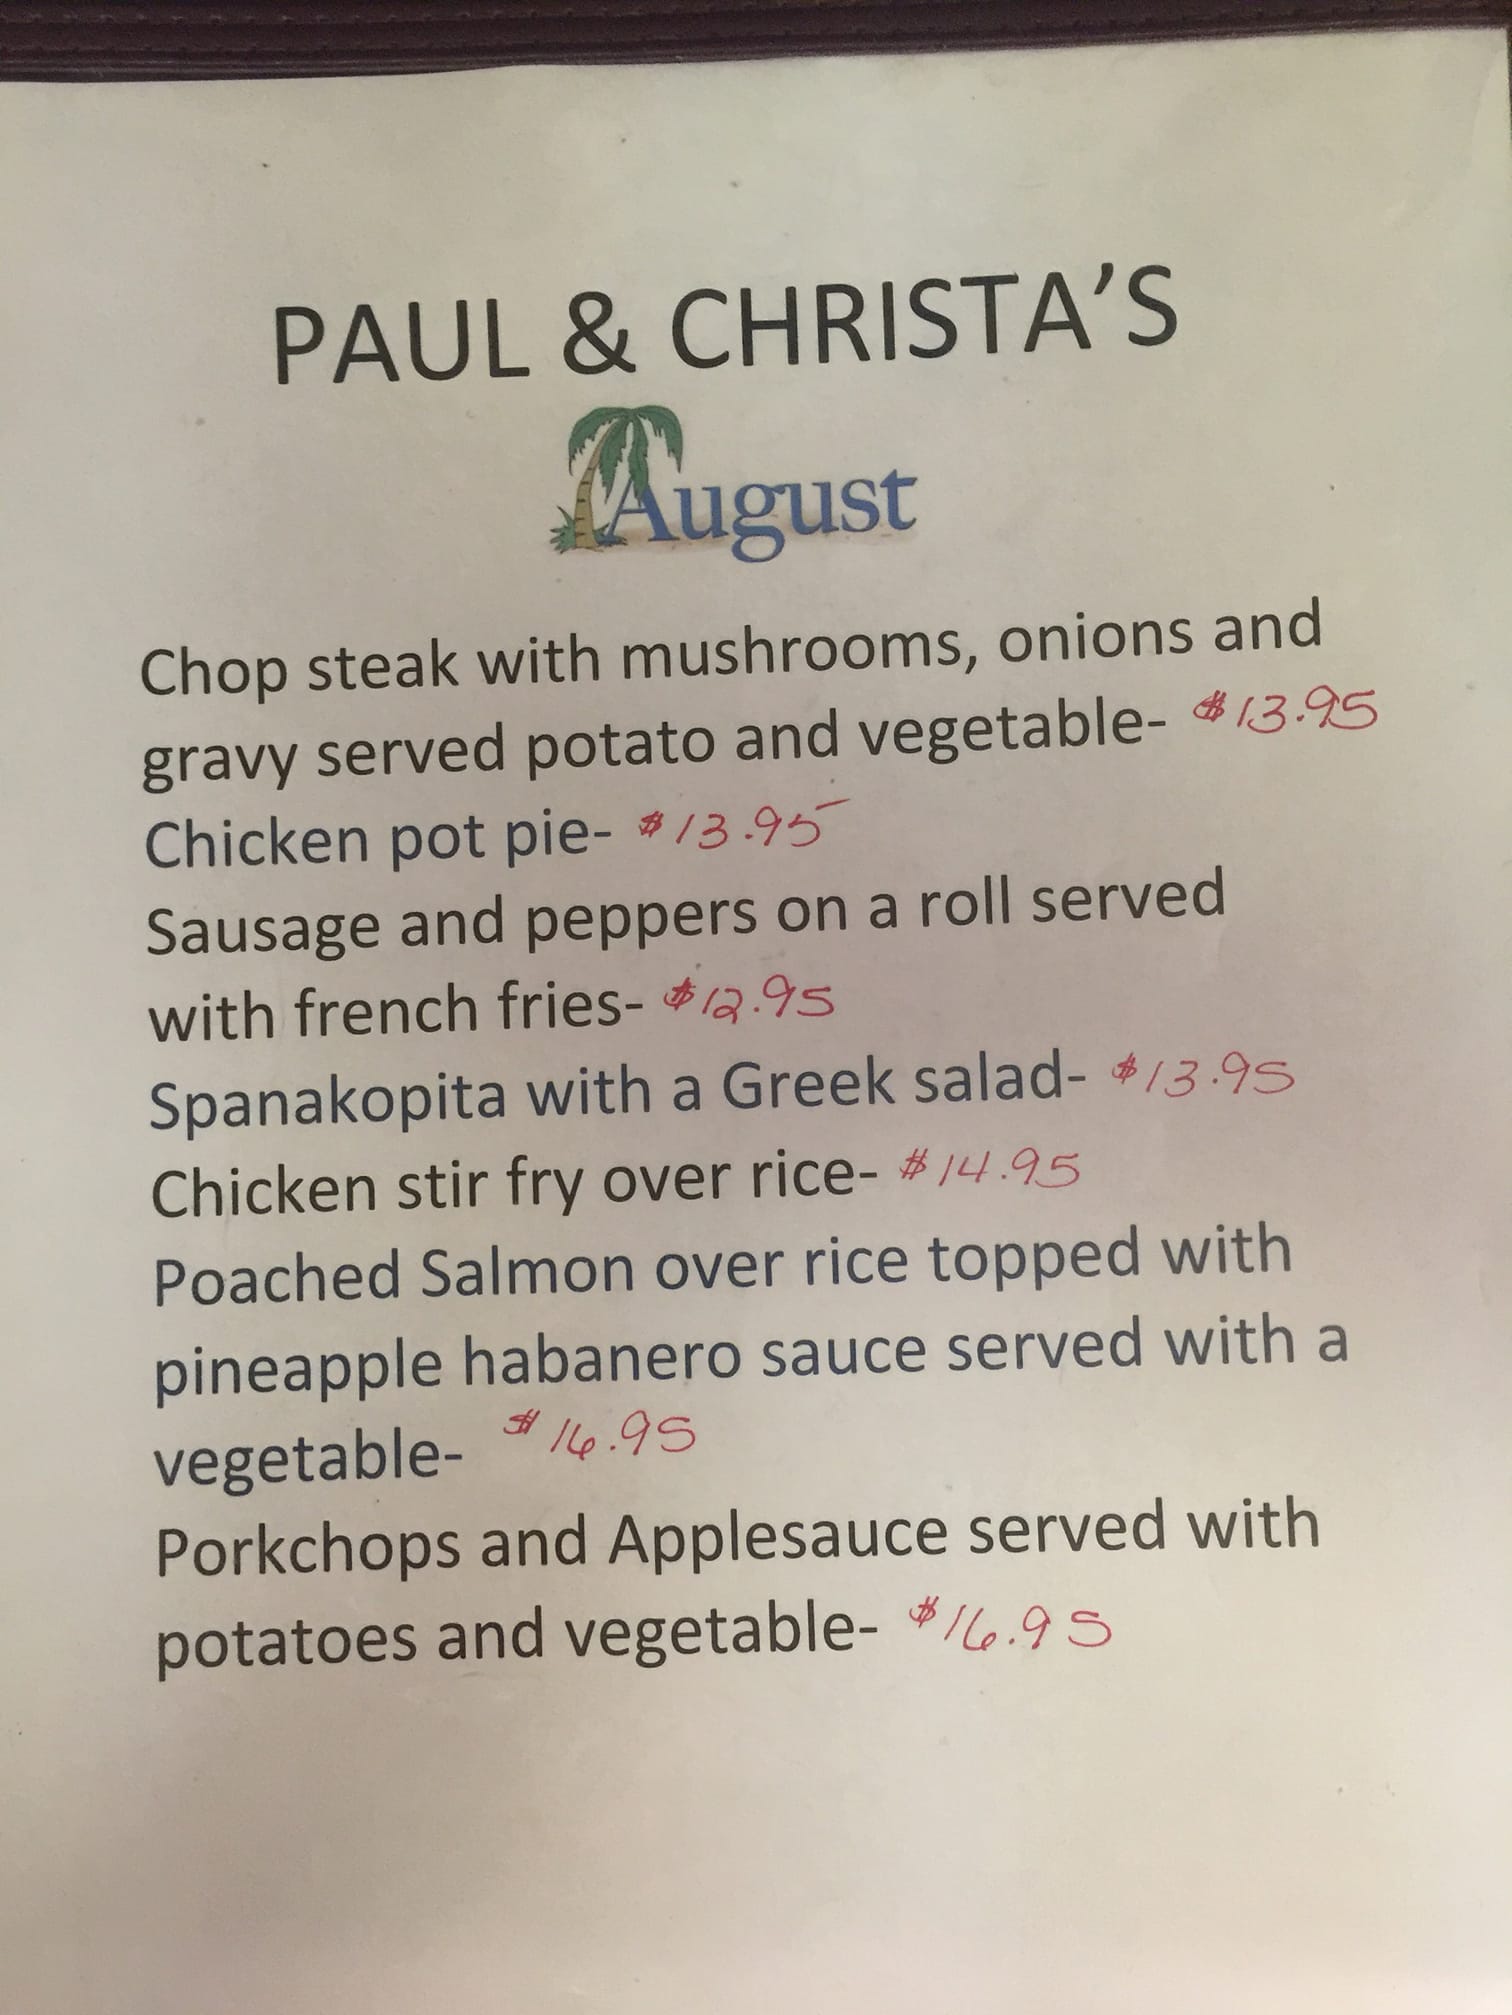 PAUL & CHRISTA'S
August
Chop steak with mushrooms, onions and
gravy served potato and vegetable- $13.95
Chicken pot pie- $13.95
Sausage and peppers on a roll served
with french fries- $12.95
Spanakopita with a Greek salad- $13.95
Chicken stir fry over rice- $14.95
Poached Salmon over rice topped with
pineapple habanero sauce served with a
vegetable- $16.95
Porkchops and Applesauce served with
potatoes and vegetable- $16.95